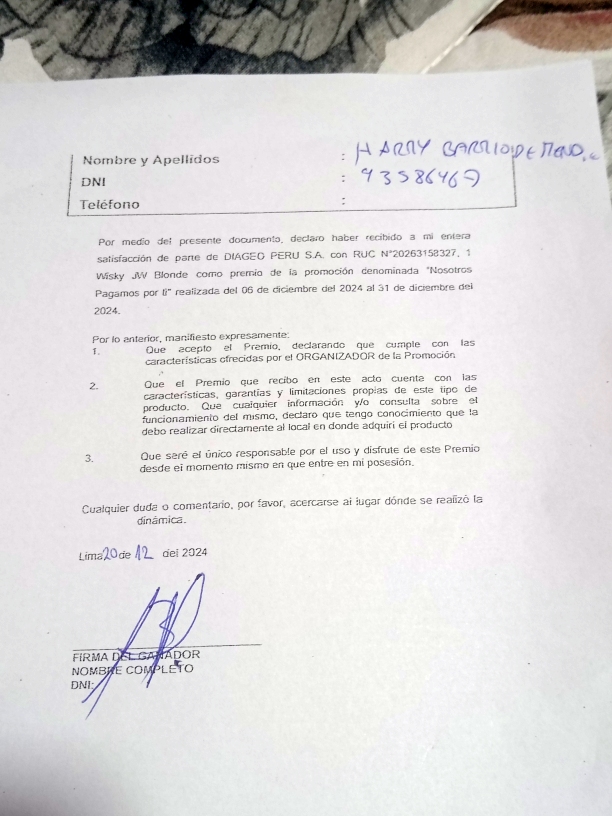 Nombre y Apellidos : HARRY BARRIO DE MEND
DNI : 43586467
Teléfono :
Por medio del presente documento, declaro haber recibido a mi entera
satisfacción de parte de DIAGEO PERU S.A. con RUC N°20263158327, 1
Wisky JW Blonde como premio de la promoción denominada "Nosotros
Pagamos por ti" realizada del 06 de diciembre del 2024 al 31 de diciembre del
2024.
Por lo anterior, manifiesto expresamente:
1. Que acepto el Premio, declarando que cumple con las
características ofrecidas por el ORGANIZADOR de la Promoción
2. Que el Premio que recibo en este acto cuenta con las
características, garantías y limitaciones propias de este tipo de
producto. Que cualquier información y/o consulta sobre el
funcionamiento del mismo, declaro que tengo conocimiento que la
debo realizar directamente al local en donde adquirí el producto
3. Que seré el único responsable por el uso y disfrute de este Premio
desde el momento mismo en que entre en mi posesión.
Cualquier duda o comentario, por favor, acercarse al lugar dónde se realizó la
dinámica.
Lima 20 de 12 del 2024
FIRMA DEL GANADOR
NOMBRE COMPLETO
DNI: